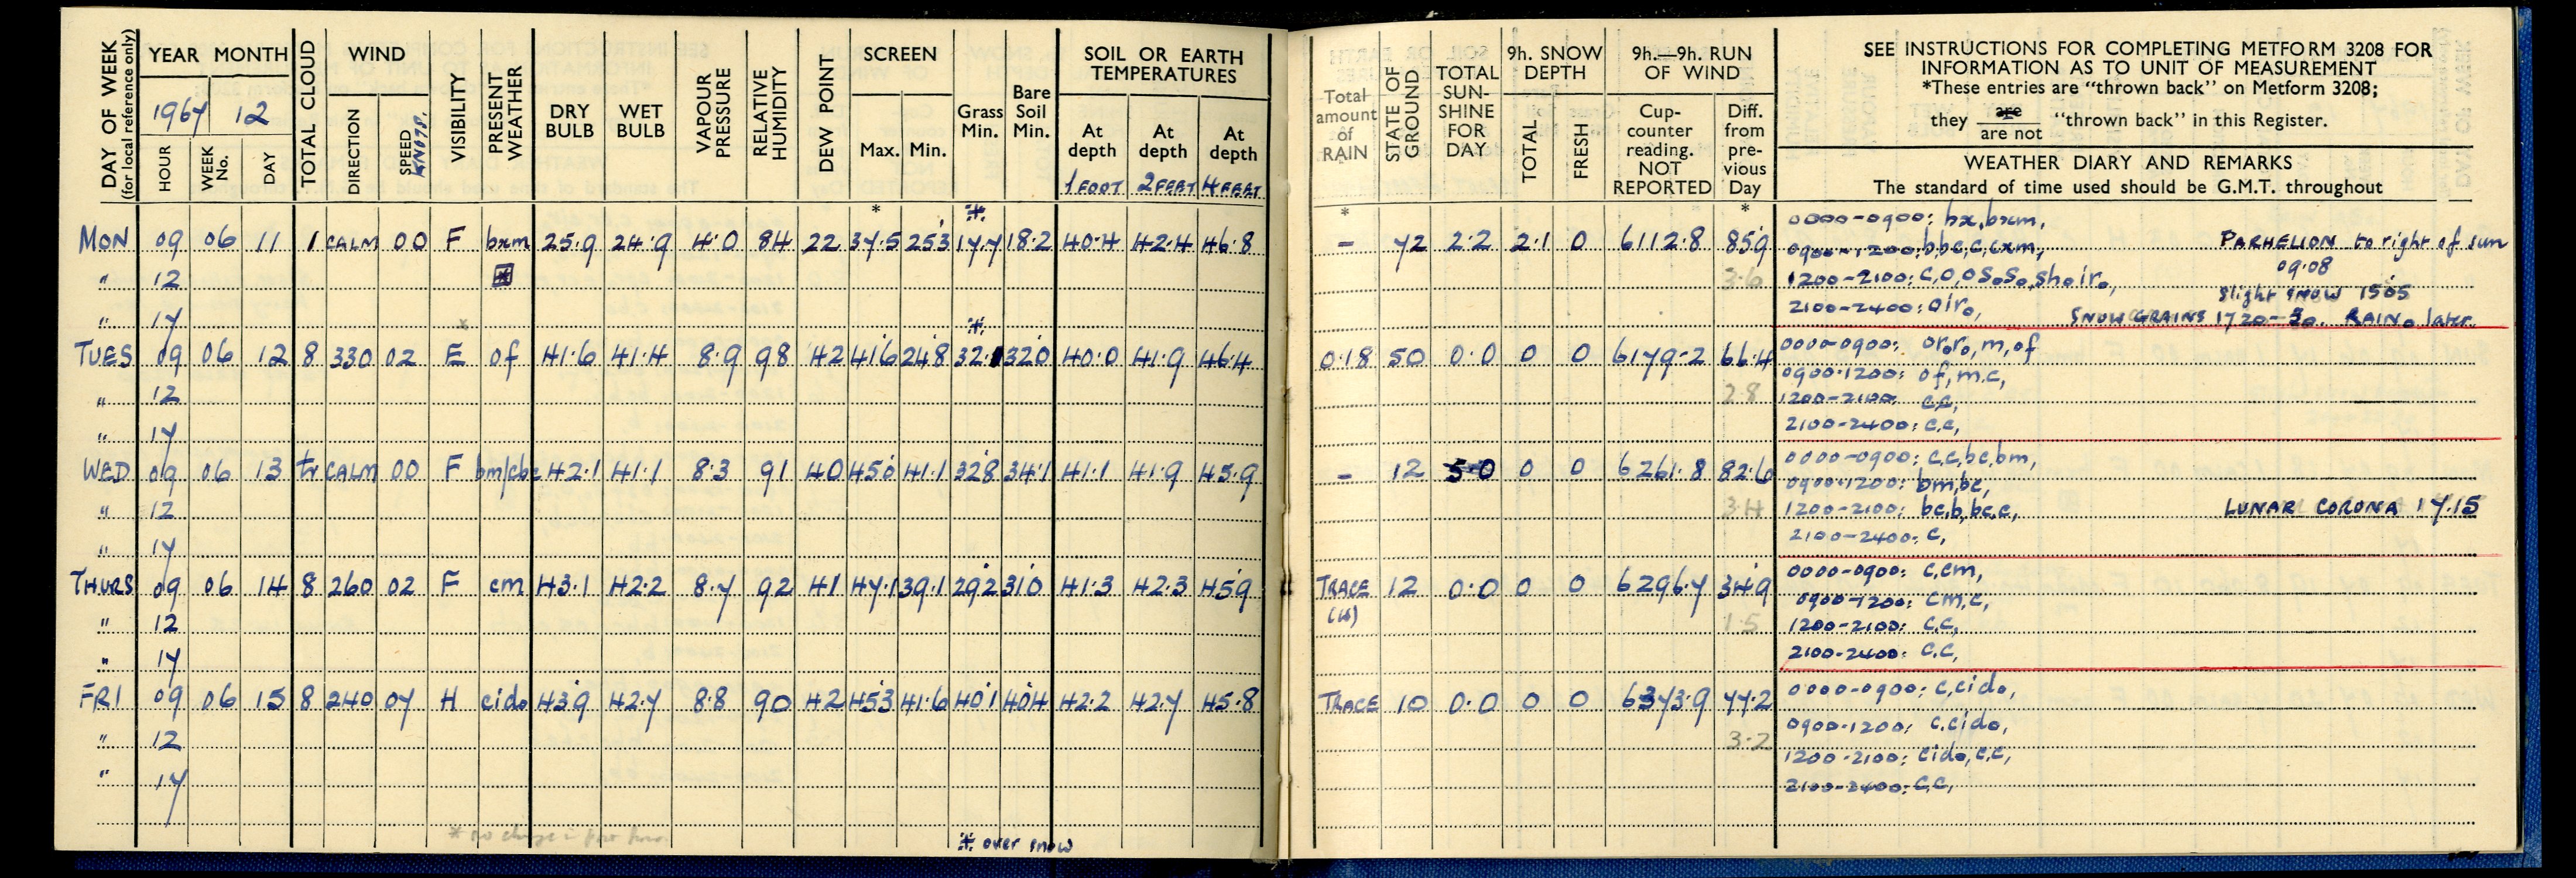 DAY OF WEEK (for local reference only)
YEAR MONTH
1967 12
HOUR WEEK No. DAY
TOTAL CLOUD
WIND
DIRECTION SPEED KNOTS.
VISIBILITY
PRESENT WEATHER
DRY BULB
WET BULB
VAPOUR PRESSURE
RELATIVE HUMIDITY
DEW POINT
SCREEN
Max. Min.
Grass Min.
Bare Soil Min.
SOIL OR EARTH TEMPERATURES
At depth At depth At depth
1 FOOT 2 FEET 4 FEET
Total amount of RAIN
STATE OF GROUND
TOTAL SUN-SHINE FOR DAY
9h. SNOW DEPTH
TOTAL FRESH
9h.—9h. RUN OF WIND
Cup-counter reading. NOT REPORTED
Diff. from pre-vious Day
SEE INSTRUCTIONS FOR COMPLETING METFORM 3208 FOR
INFORMATION AS TO UNIT OF MEASUREMENT
*These entries are "thrown back" on Metform 3208;
they are / are not "thrown back" in this Register.
WEATHER DIARY AND REMARKS
The standard of time used should be G.M.T. throughout
* * * *
MON 09 06 11 1 CALM 00 F bxm 25.9 24.9 4.0 84 22 37.5 25.3 17.7 18.2 40.4 42.4 46.8 – 72 2.2 2.1 0 6112.8 85.9
0000-0900: bx,bxm,
0900-1200: bbc,c,cxm, PARHELION to right of sun
09.08
" 12 * 3.6 1200-2100: c,o,os₀s₀,sh₀ir₀,
Slight SNOW 1505
" 17 2100-2400: oir₀, SNOW GRAINS 1720-30. RAIN₀ later.
TUES 09 06 12 8 330 02 E of 41.6 41.4 8.9 98 42 41.6 24.8 32.1 32.0 40.0 41.9 46.4 0.18 50 0.0 0 0 6179.2 66.4
0000-0900: or₀r₀,m,of
0900-1200: of,m.c,
" 12 2.8 1200-2100: c.c,
" 17 2100-2400: c.c,
WED 09 06 13 tr CALM 00 F bm/cbc 42.1 41.1 8.3 91 40 45.0 41.1 32.8 34.1 41.1 41.9 45.9 – 12 5.0 0 0 6261.8 82.6
0000-0900: c.c,bc,bm,
0900-1200: bm,bc,
" 12 3.4 1200-2100: bc,b,bc,c, LUNAR CORONA 17.15
" 17 2100-2400: c,
THURS 09 06 14 8 260 02 F cm 43.1 42.2 8.7 92 41 47.1 39.1 29.2 31.0 41.3 42.3 45.9 TRACE 12 0.0 0 0 6296.7 34.9
0000-0900: c,cm,
0900-1200: cm,c,
" 12 1.5 1200-2100: c.c,
" 17 2100-2400: c.c,
FRI 09 06 15 8 240 07 H cid₀ 43.9 42.7 8.8 90 42 45.3 41.6 40.1 40.4 42.2 42.7 45.8 TRACE 10 0.0 0 0 6373.9 77.2
0000-0900: c,cid₀,
0900-1200: c.cid₀,
" 12 3.2 1200-2100: cid₀,c.c,
" 17 2100-2400: c.c,
* no change in
* over snow